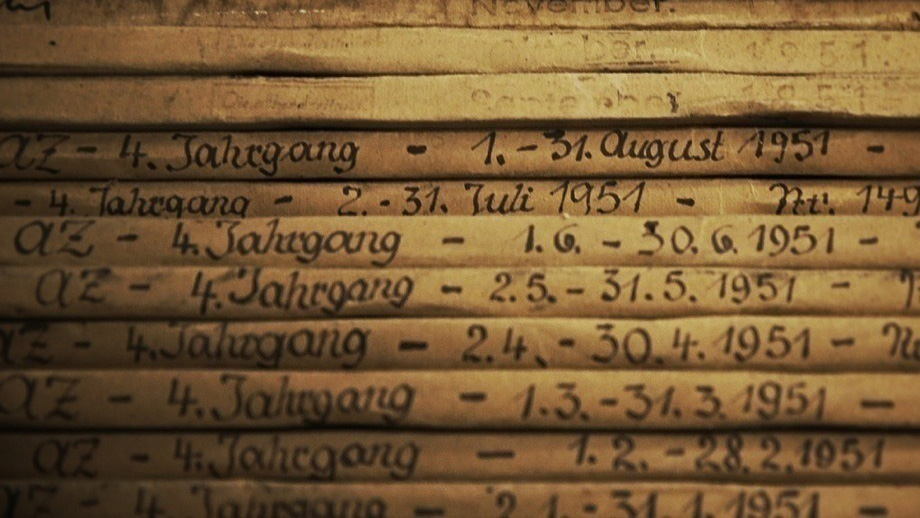 November.
October. 1951.
September 1951
AZ - 4. Jahrgang - 1. - 31. August 1951 -
- 4. Jahrgang - 2. - 31. Juli 1951 - Nr. 149
AZ - 4. Jahrgang - 1.6. - 30.6.1951 -
AZ - 4. Jahrgang - 2.5. - 31.5.1951 -
AZ - 4. Jahrgang - 2.4. - 30.4.1951 -
AZ - 4. Jahrgang - 1.3. - 31.3.1951 -
AZ - 4. Jahrgang - 1.2. - 28.2.1951
AZ - 4. Jahrgang - 2.1. - 31.1.1951 -